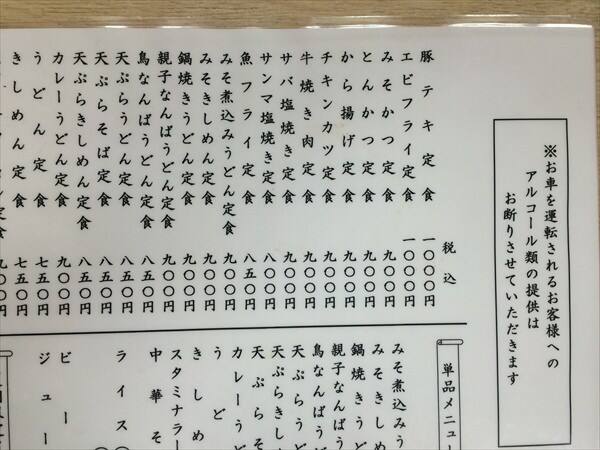 ※お車を運転されるお客様への
アルコール類の提供は
お断りさせていただきます
税込
豚テキ定食 一〇〇〇円
エビフライ定食 一〇〇〇円
みそかつ定食 九〇〇円
とんかつ定食 九〇〇円
から揚げ定食 九〇〇円
チキンカツ定食 九〇〇円
牛焼き肉定食 九〇〇円
サバ塩焼き定食 九〇〇円
サンマ塩焼き定食 九〇〇円
魚フライ定食 八五〇円
みそ煮込みうどん定食 九〇〇円
みそきしめん定食 九〇〇円
鍋焼きうどん定食 九〇〇円
親子なんばうどん定食 九〇〇円
鳥なんばうどん定食 八五〇円
天ぷらうどん定食 八五〇円
天ぷらそば定食 八五〇円
天ぷらきしめん定食 八五〇円
カレーうどん定食 九〇〇円
うどん定食 七五〇円
きしめん定食 七五〇円
定食 九〇〇円
単品メニュー
みそ煮込みう
みそきし
鍋焼きうど
親子なんば
鳥なんばう
天ぷらうど
天ぷらきし
天ぷらそ
カレーうど
うど
きしめ
スタミナラー
中華そ
ライス
ビー
ジュー